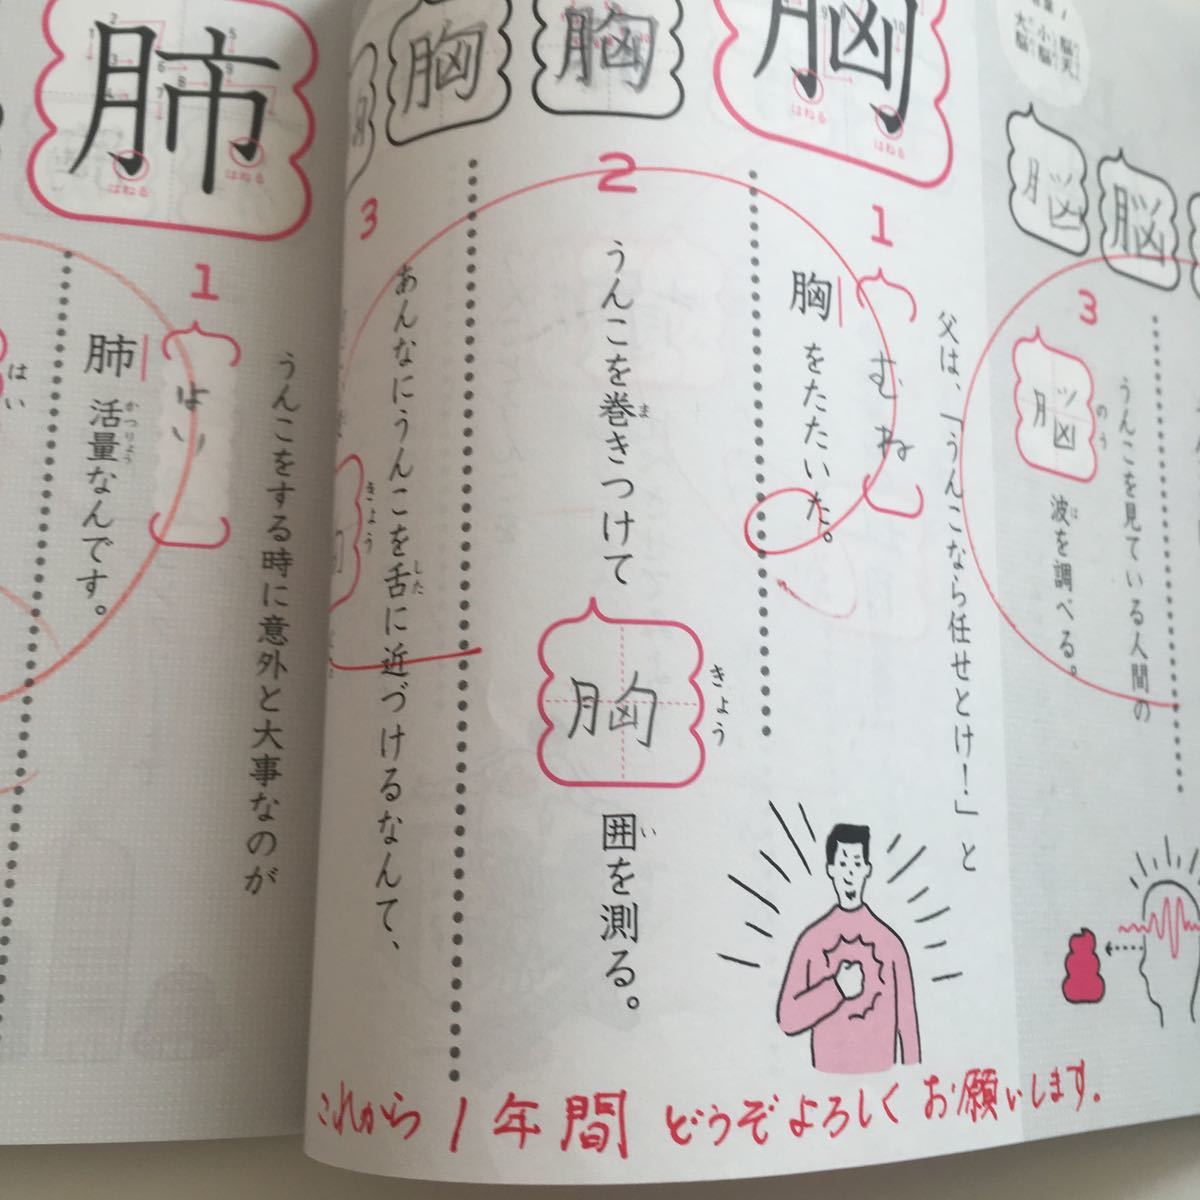 脳
脳
3
うんこを見ている人間の
脳
のう
波を調べる。
は
胸
はねる
はねる
胸
胸
1
父は、「うんこなら任せとけ！」と
むね
胸をたたいた。
2
うんこを巻きつけて
ま
胸
きょう
囲を測る。
い
3
あんなにうんこを舌に近づけるなんて、
した
きょう
これから1年間どうぞよろしくお願いします。
肺
はねる
はねる
1
うんこをする時に意外と大事なのが
はい
肺活量なんです。
かつりょう
はい